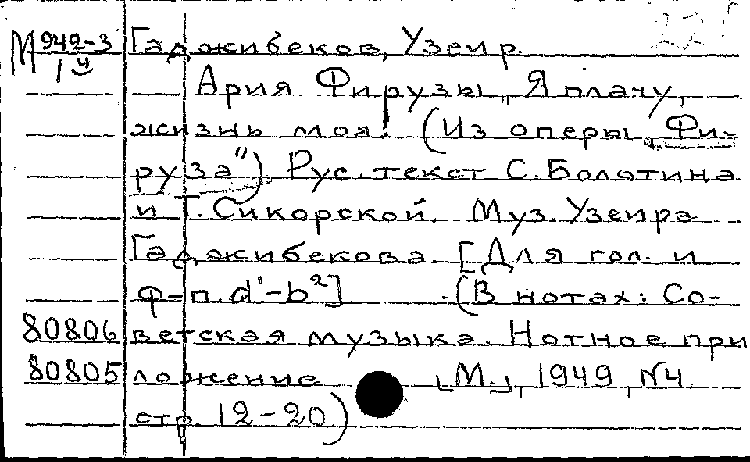 М 942-3 Гаджибеков, Узеир.
1ч
Ария Фирузы „Я плачу,
жизнь моя! (Из оперы „Фи-
руза"). Рус. текст С. Болотина
и Т. Сикорской. Муз. Узеира
Гаджибекова. [Для гол. и
ф-п. d¹-b²] (В нотах: Со-
80806 ветская музыка. Нотное при
80805 ложение [М.], 1949, №4
стр. 12-20)